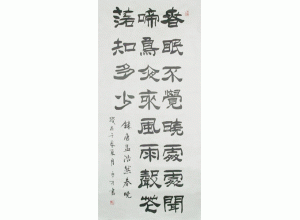 春眠不覺曉處處聞
啼鳥夜來風雨聲花
落知多少
錄唐孟浩然春曉